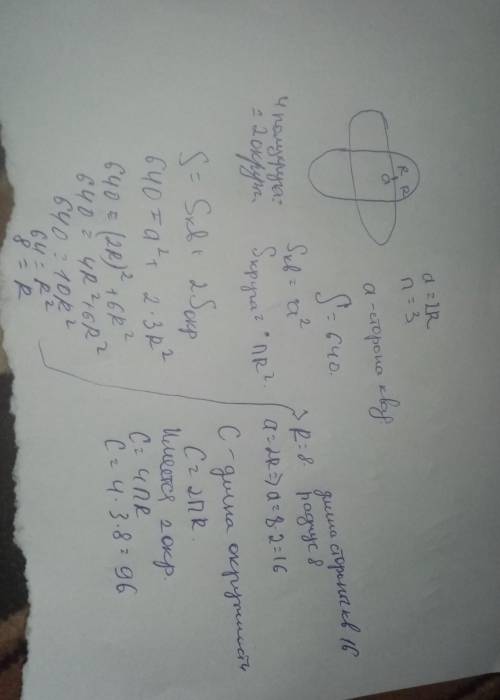 R
R
a
a=2R
п=3
a-сторона квад.
S=640.
4 полукруга=
=2 округ.
Sкв = a²
Sкруга = пR².
S= Sкв + 2Sокр
640=a²+ 2·3R²
640 = (2R)²+6R²
640 = 4R²+6R²
640 = 10R²
64=R²
8=R
длина стороны кв 16
радиус 8
R=8.
a=2R=>a=8·2=16
C-длина окружности
C=2ПR.
Имеется 2 окр.
C=4ПR
C=4·3·8=96